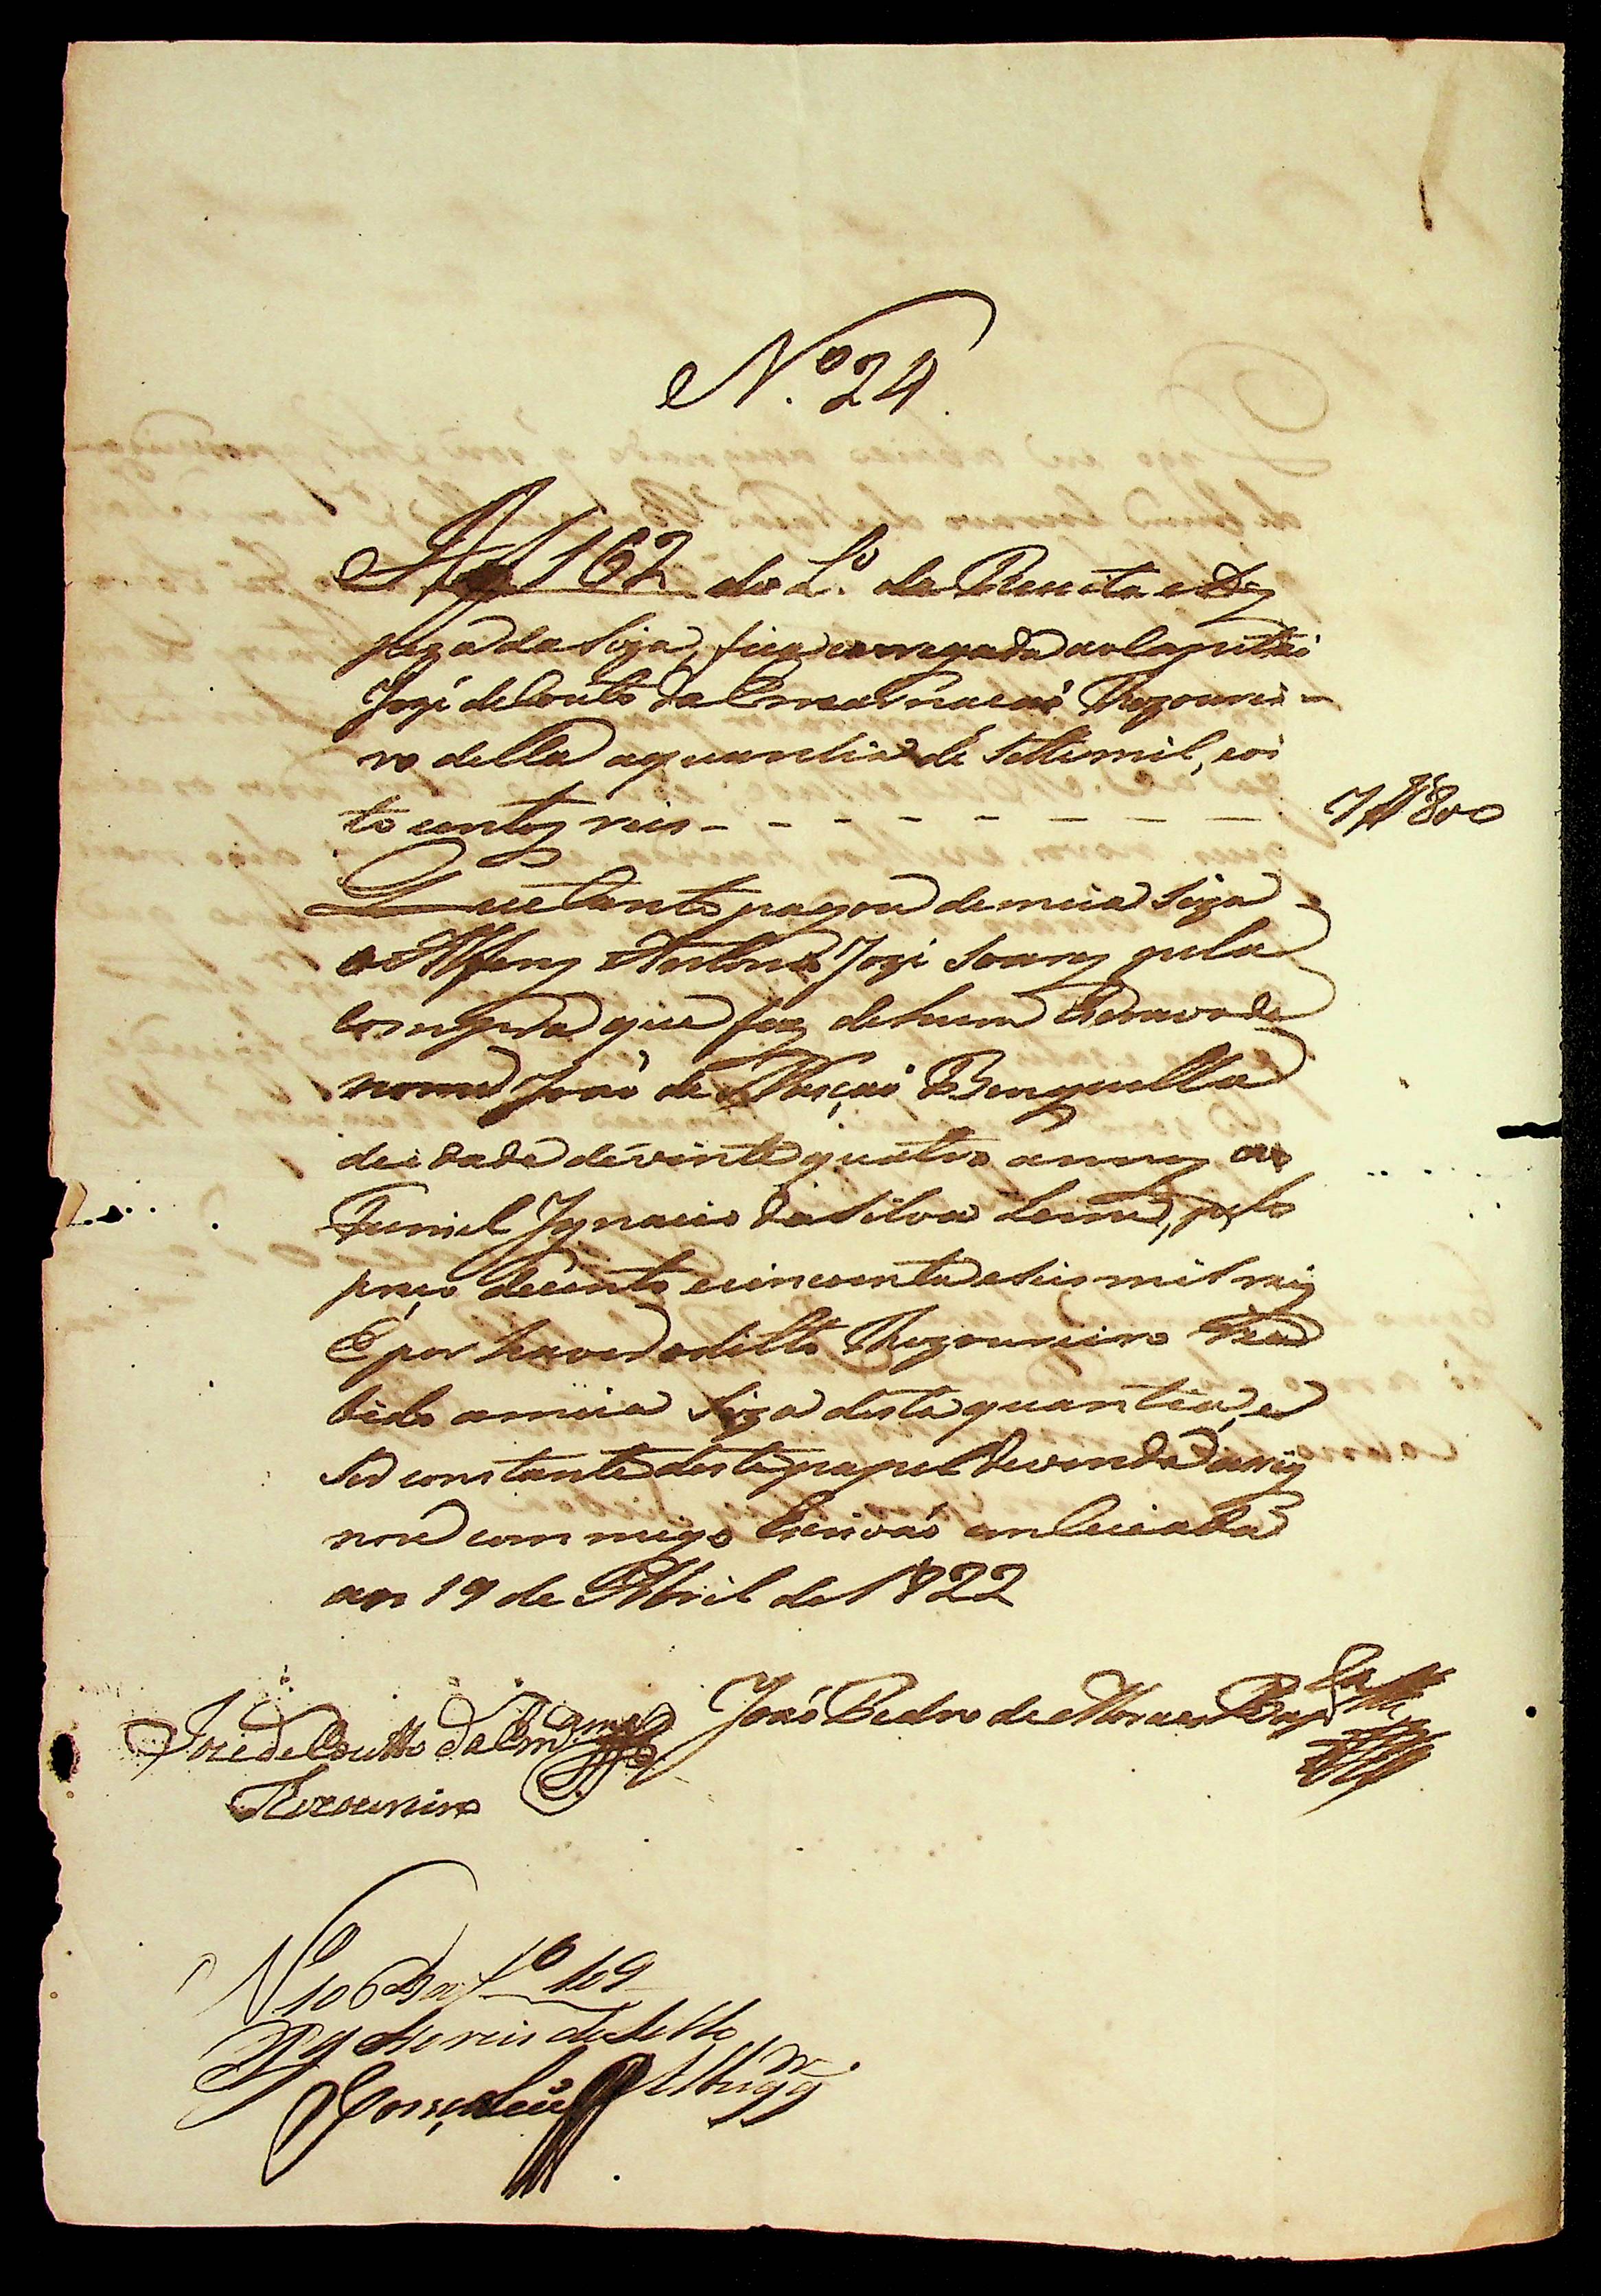 Nº 24.
Af 162 do Lº da Receita e Des
peza da Siza, fica carregada ao Capitaó
Jozé de Couto da Encarnacaó Thezourei-
ro della a quantia de Sette mil, eoi
to centos reis - - - - - - - - 7$800
Que tanto pagou de meia Siza
o Alferes Antonio Jozé Soares pela
compra que fez de hum Escravo de
nome Joaó de Naçaó Benguella
de idade de vinte quatro annos ao
Ignacio da Silva Leme, pelo
preço de cento e cincoenta e seis mil reis
E por haver o ditto Thezoureiro Rece
bido a meia Siza desta quantia, e
Ser constante deste papel de venda assig
nou com migo Escrivaó
19 de Abril de 1822
José de Coutto da Joaó Pedro de Moraes
Thezoureiro
Nº 106 fº 169
Pg reis de Sello